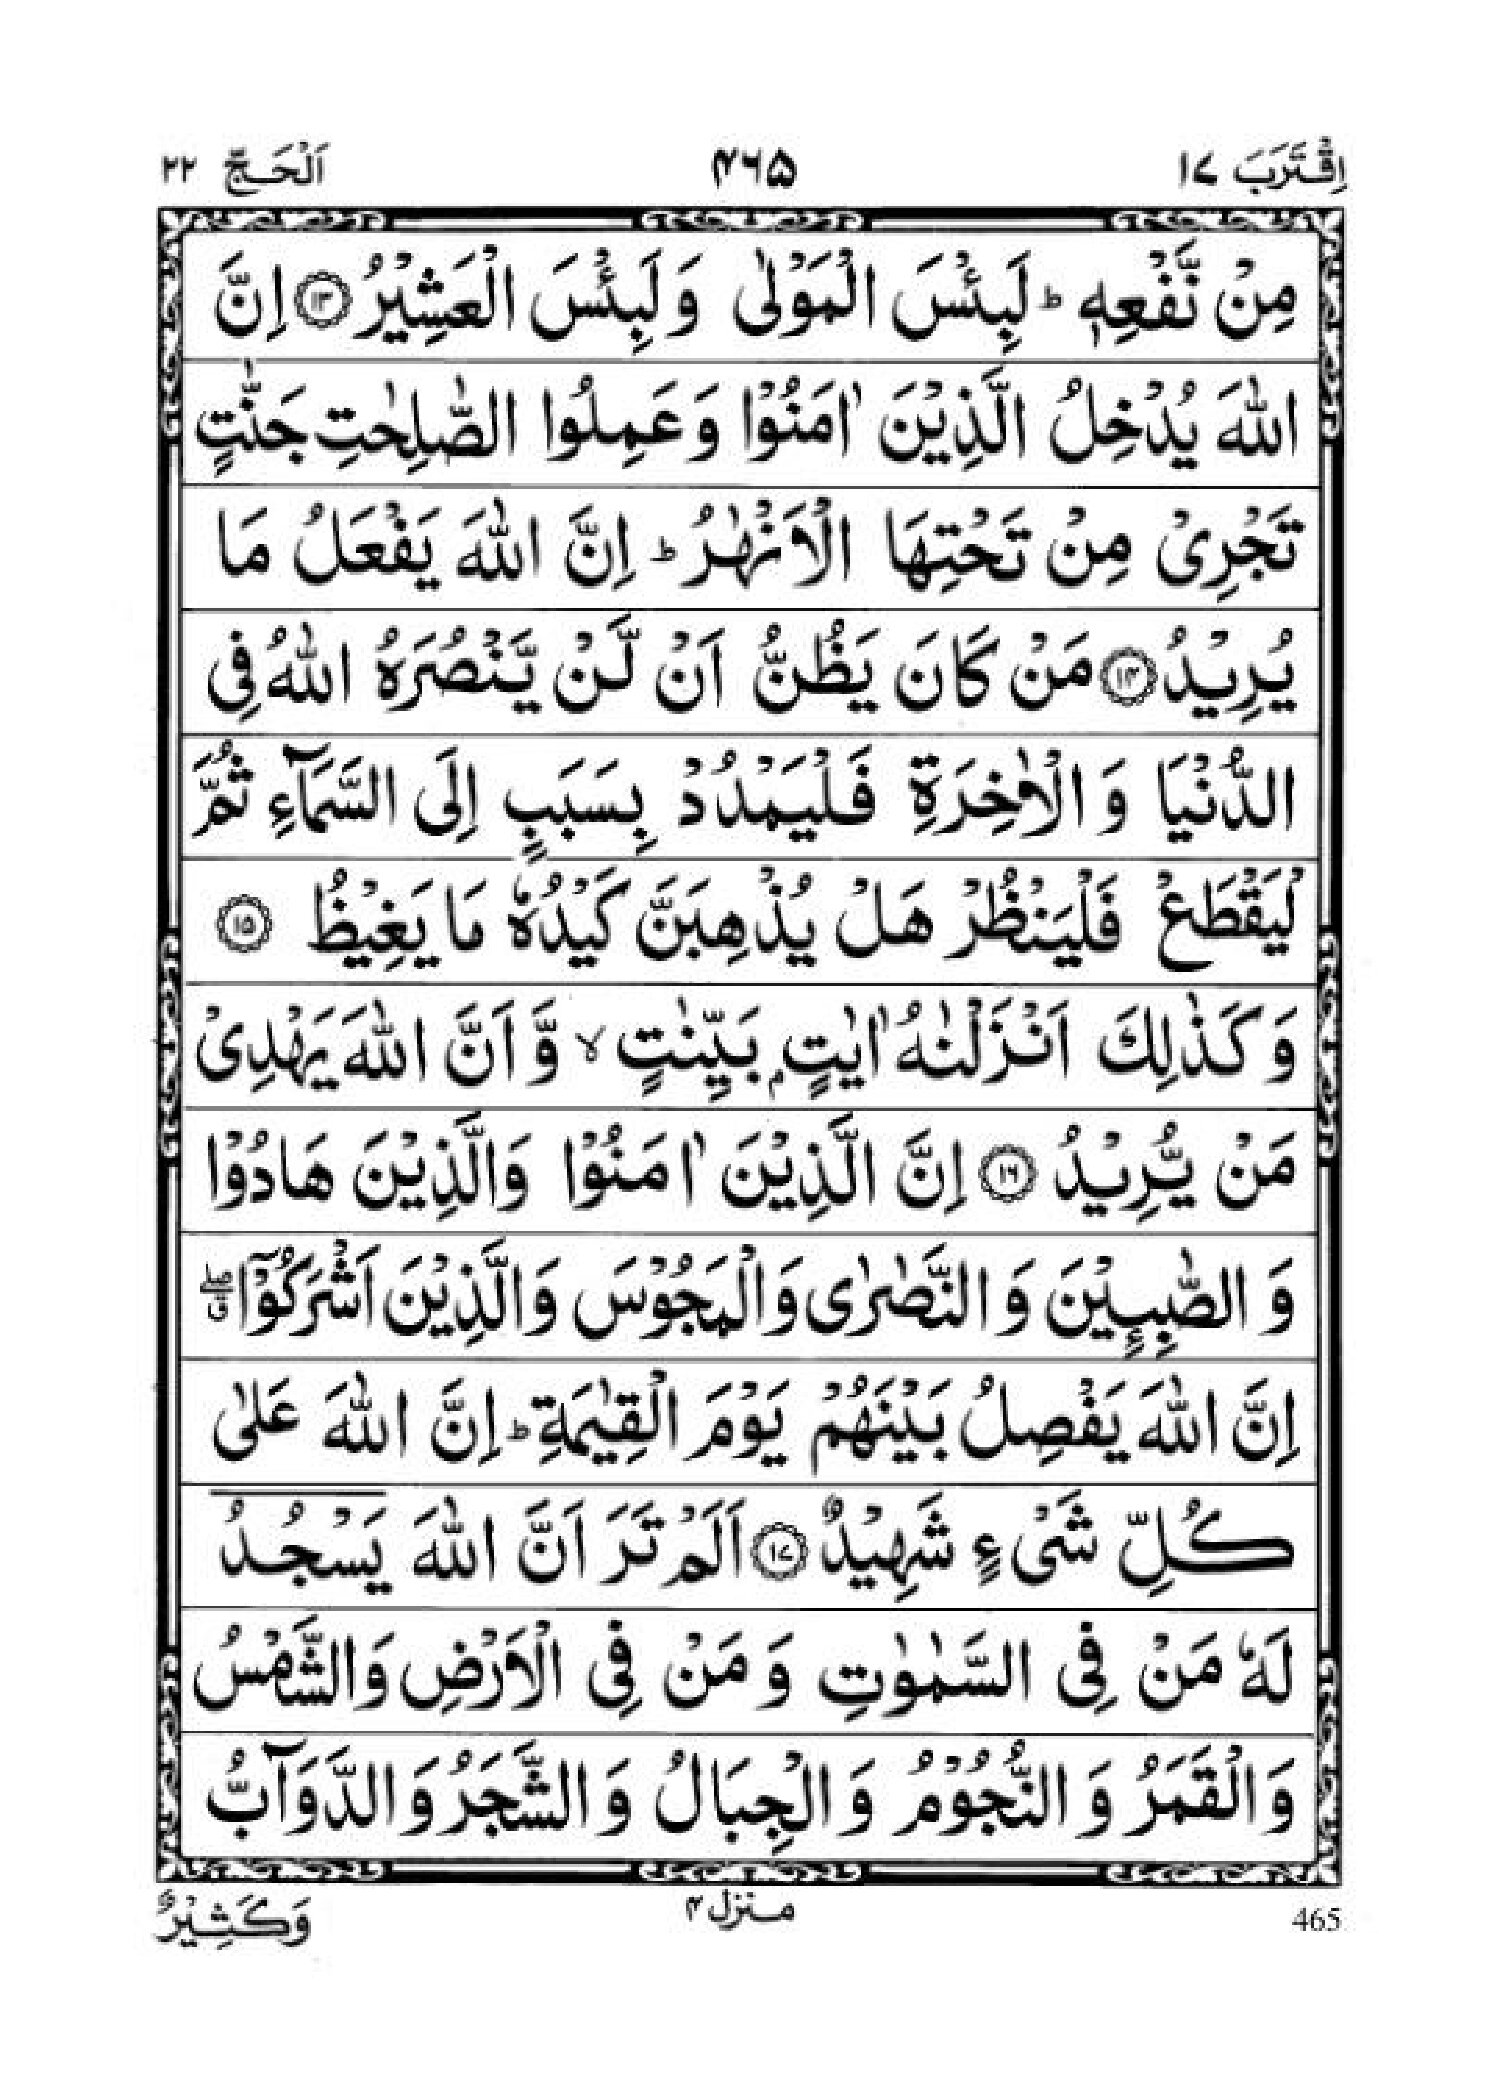 اِقْتَرَبَ ١٧ ۴۶۵ اَلْحَجّ ٢٢
مِنْ نَّفْعِهٖ ؕ لَبِئْسَ الْمَوْلٰى وَ لَبِئْسَ الْعَشِيْرُ ﴿۱۳﴾ اِنَّ
اللّٰهَ يُدْخِلُ الَّذِيْنَ اٰمَنُوْا وَ عَمِلُوا الصّٰلِحٰتِ جَنّٰتٍ
تَجْرِيْ مِنْ تَحْتِهَا الْاَنْهٰرُ ؕ اِنَّ اللّٰهَ يَفْعَلُ مَا
يُرِيْدُ ﴿۱۴﴾ مَنْ كَانَ يَظُنُّ اَنْ لَّنْ يَّنْصُرَهُ اللّٰهُ فِي
الدُّنْيَا وَ الْاٰخِرَةِ فَلْيَمْدُدْ بِسَبَبٍ اِلَى السَّمَآءِ ثُمَّ
لْيَقْطَعْ فَلْيَنْظُرْ هَلْ يُذْهِبَنَّ كَيْدُهٗ مَا يَغِيْظُ ﴿۱۵﴾
وَ كَذٰلِكَ اَنْزَلْنٰهُ اٰيٰتٍۭ بَيِّنٰتٍ ۙ وَّ اَنَّ اللّٰهَ يَهْدِيْ
مَنْ يُّرِيْدُ ﴿۱۶﴾ اِنَّ الَّذِيْنَ اٰمَنُوْا وَالَّذِيْنَ هَادُوْا
وَ الصّٰبِـِٕيْنَ وَ النَّصٰرٰى وَالْمَجُوْسَ وَالَّذِيْنَ اَشْرَكُوْۤا ۖۗ
اِنَّ اللّٰهَ يَفْصِلُ بَيْنَهُمْ يَوْمَ الْقِيٰمَةِ ؕ اِنَّ اللّٰهَ عَلٰى
كُلِّ شَيْءٍ شَهِيْدٌ ﴿۱۷﴾ اَلَمْ تَرَ اَنَّ اللّٰهَ يَسْجُدُ
لَهٗ مَنْ فِي السَّمٰوٰتِ وَ مَنْ فِي الْاَرْضِ وَالشَّمْسُ
وَالْقَمَرُ وَ النُّجُوْمُ وَ الْجِبَالُ وَ الشَّجَرُ وَ الدَّوَآبُّ
465 منزل ۴ وَكَثِيْرٌ